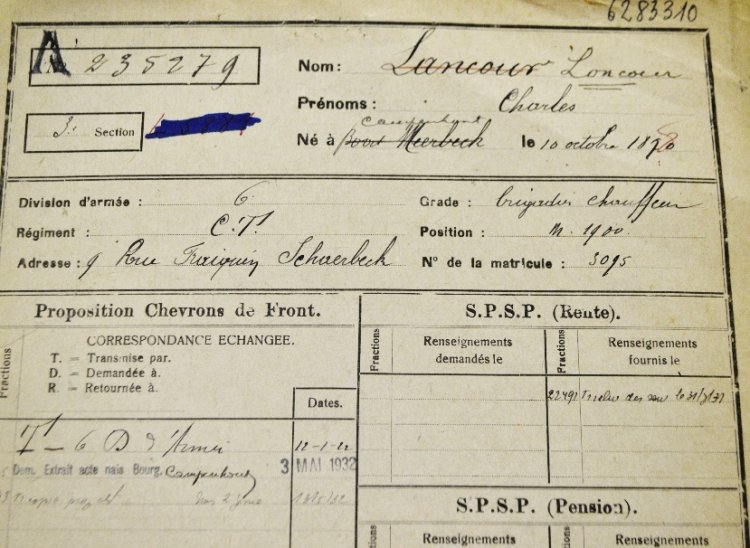 6283310
A 235279
Nom: Lancour Loncour
Prénoms: Charles
3. Section
Campenhout
Né à Meerbeck le 10 octobre 18
Division d'armée : 6 Grade : brigadier chauffeur
Régiment : C.T. Position : m. 1900
Adresse : 9 Rue Fraiquin Schaerbeck N° de la matricule : 3095
Proposition Chevrons de Front.
CORRESPONDANCE ECHANGEE.
T. = Transmise par.
D. = Demandée à.
R. = Retournée à.
Fractions
Dates.
T - 6 D d'Armée 12-1-22
Dem. Extrait acte nais Bourg. Campenhout 3 MAI 1932
S.P.S.P. (Rente).
Fractions
Renseignements
demandés le
Fractions
Renseignements
fournis le
22491 le 31/3/31
S.P.S.P. (Pension).
Renseignements
Renseignements